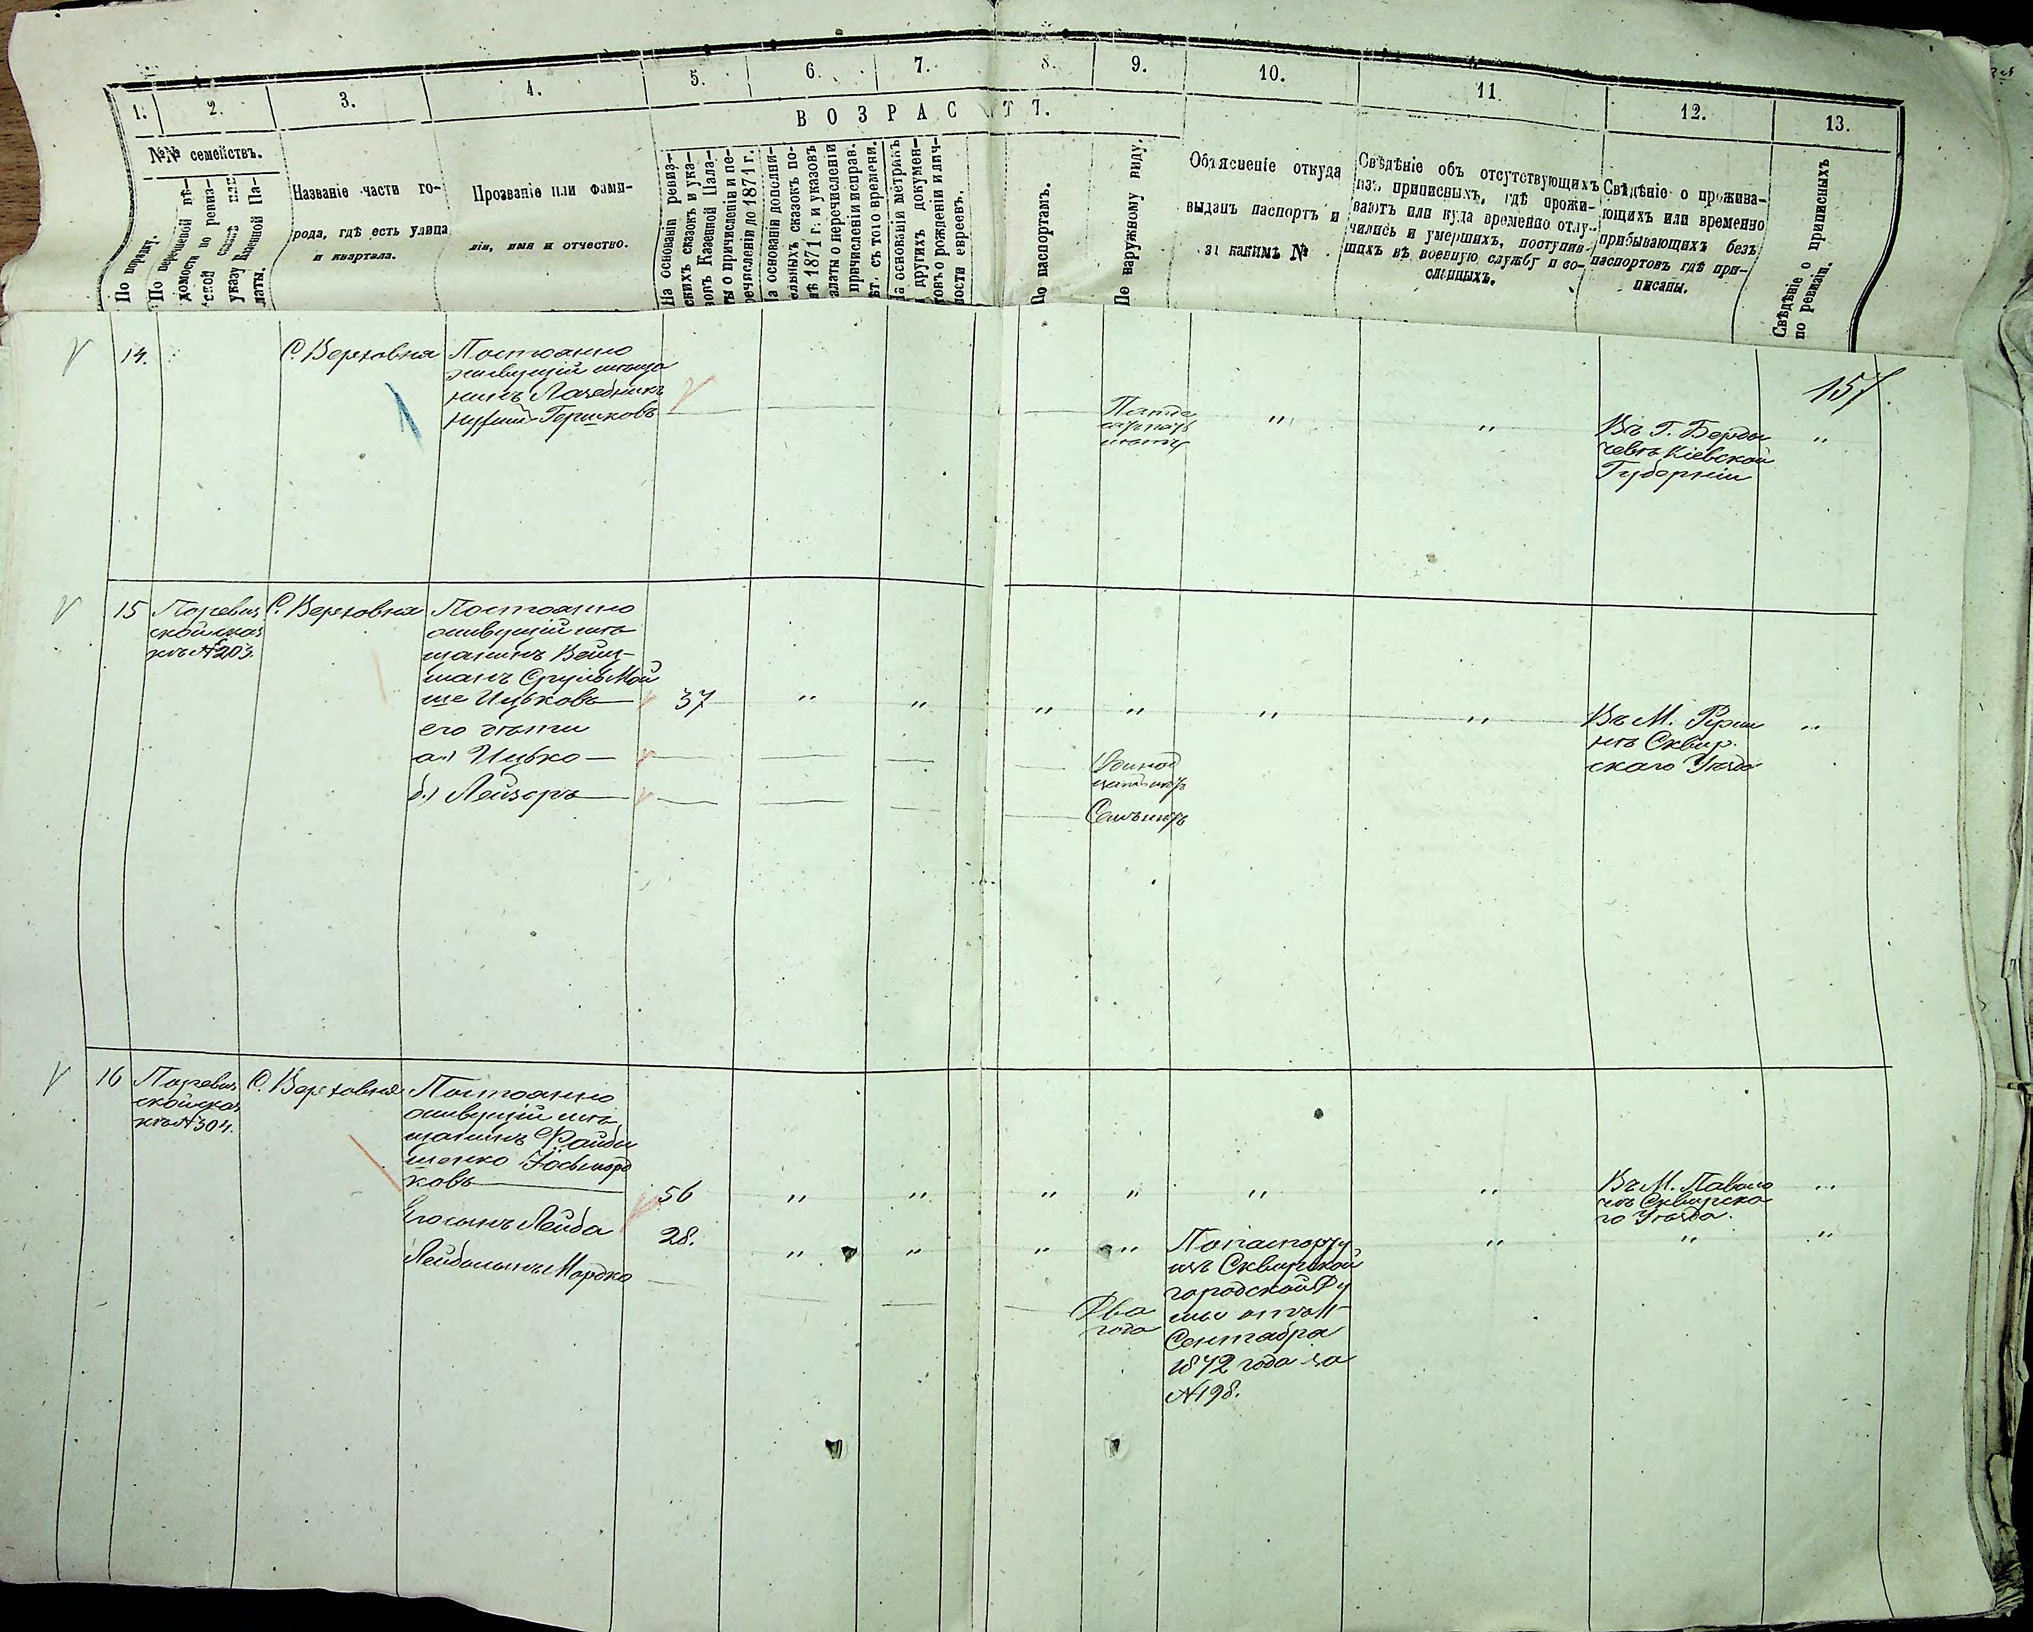 1.
2.
3.
4.
5.
6.
7.
8.
9.
10.
11.
12.
13.
ВОЗРАСТЪ.
№№ семействъ.
По порядку.
По перешевой вѣ-
домости по ревиз-
ской сказкѣ или
указу Казенной Па-
латы.
Названіе части го-
рода, гдѣ есть улица
и квартала.
Прозваніе или фами-
лія, имя и отчество.
На основаніи ревиз-
скихъ сказокъ и ука-
зовъ Казенной Пала-
ты о причисленіи и пе-
речисленіи до 1871 г.
На основаніи дополни-
тельныхъ сказокъ по-
слѣ 1871 г. и указовъ
Палаты о перечисленіи
и причисленіи исправ.
лѣт. съ того времени.
На основаніи метрикъ
и другихъ докумен-
товъ о рожденіи и лич-
ности евреевъ.
По паспортамъ.
По наружному виду.
Объясненіе откуда
выданъ паспортъ и
за какимъ №
Свѣдѣніе объ отсутствующихъ
изъ приписныхъ, гдѣ прожи-
ваютъ или куда временно отлу-
чились и умершихъ, поступив-
шихъ въ военную службу и со-
сланныхъ.
Свѣдѣніе о прожива-
ющихъ или временно
прибывающихъ безъ
паспортовъ гдѣ при-
писаны.
Свѣдѣніе о приписныхъ
по ревизіи.
157.
14.
С. Верховня
Постоянно
живущій мѣща
нинъ
Гершковъ
"
"
Въ Г. Берди
чевѣ Кіевской
Губерніи
"
15
По ревиз
ской сказ
кѣ № 203.
С. Верховня
Постоянно
живущій мѣ
щанинъ Вайц-
манъ Сруль Мой
ше Ицьковъ
37
"
"
"
"
"
"
Въ М. Ружи
нѣ Сквир
скаго Уѣзда
"
его дѣти
а.) Ицько
Одинад
цать лѣтъ
б.) Лейзоръ
Семь лѣтъ
16
По ревиз
ской сказ
кѣ № 304.
С. Верховня
Постоянно
живущій мѣ
щанинъ Файби
шенко Іось Морд
ковъ
56
"
"
"
"
"
"
Въ М. Паволо
чѣ Сквирска
го Уѣзда.
"
Его сынъ Лейба
28.
"
"
"
"
По паспорту
изъ Сквирской
городской Ду
мы отъ 11
Сентября
1872 года за
№ 198.
"
"
"
Лейбы сынъ Мордко
Два
года